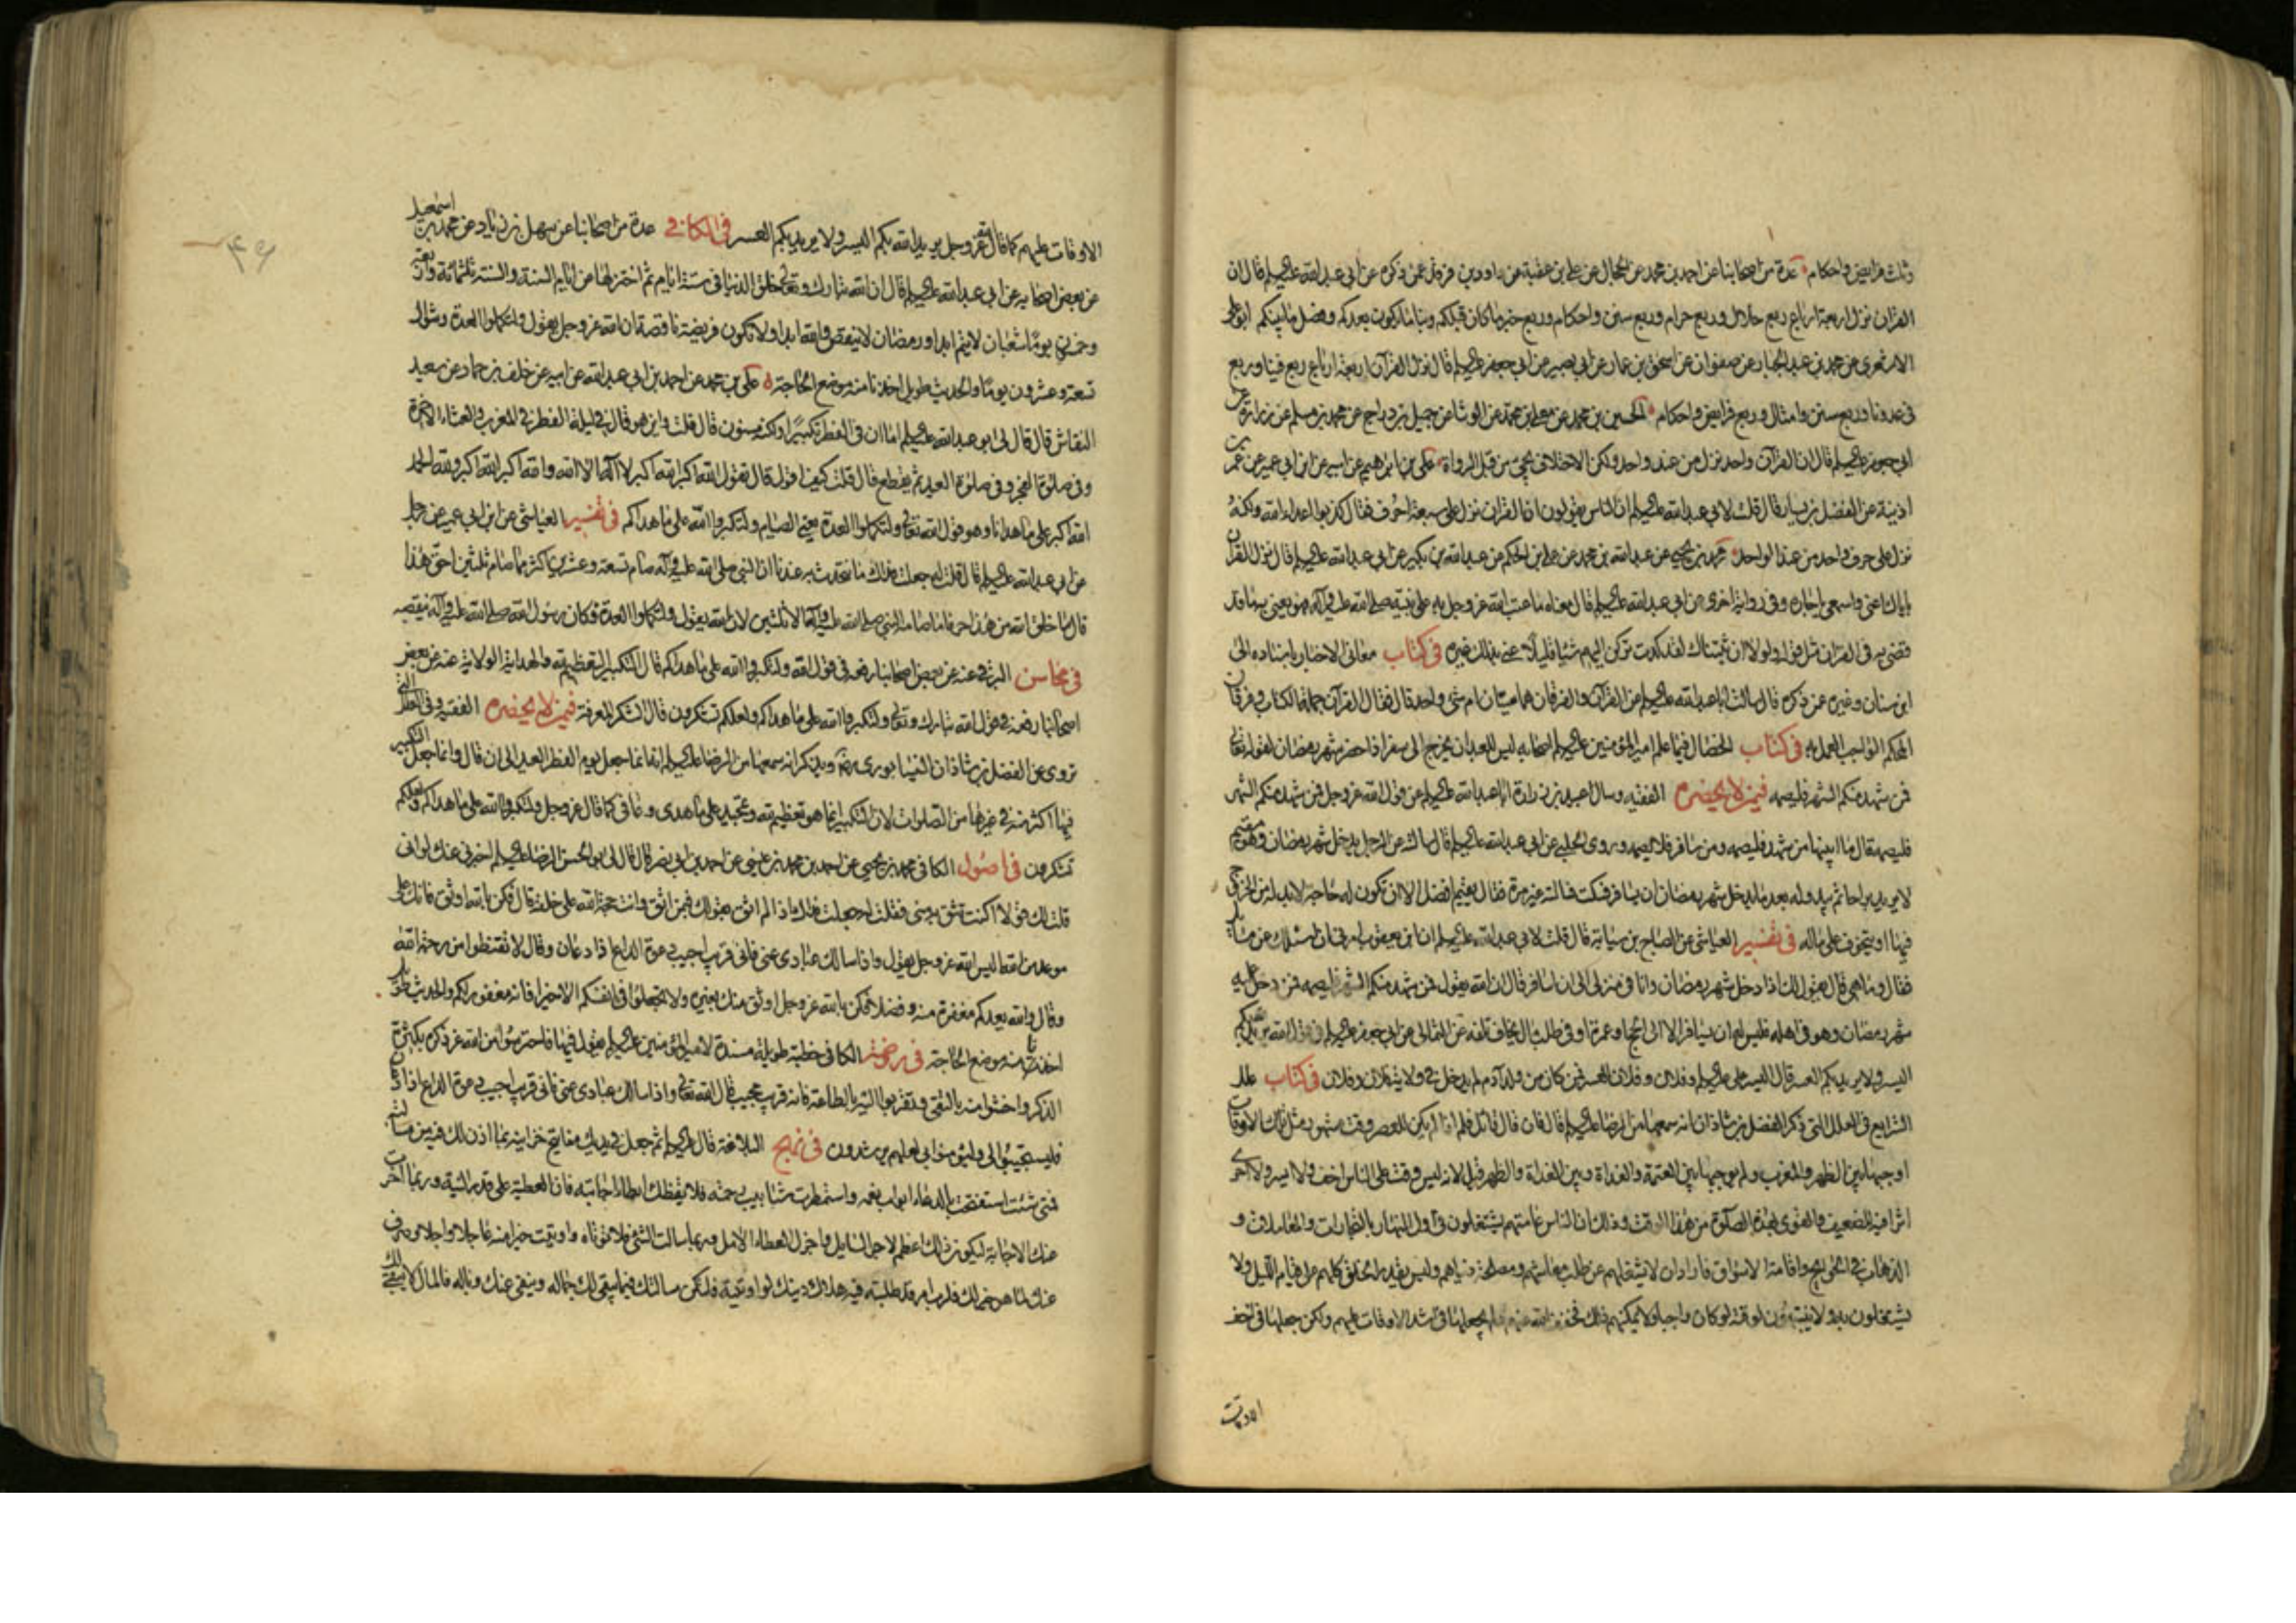 وثلث فرايض واحكام عدة من اصحابنا عن احمد بن محمد عن الحجال عن علي بن عقبة عن داود بن فرقد عمن ذكره عن ابي عبد الله عليه السلام قال ان
القران نزل اربعة ارباع ربع حلال وربع حرام وربع سنن واحكام وربع خبر ما كان قبلكم ونبأ ما يكون بعدكم وفصل ما بينكم ابو علي
الاشعري عن محمد بن عبد الجبار عن صفوان عن اسحق بن عمار عن ابي بصير عن ابي جعفر عليه السلام قال نزل القرآن اربعة ارباع ربع فينا وربع
في عدونا وربع سنن وامثال وربع فرايض واحكام الحسين بن محمد عن معلى بن محمد عن الوشا عن جميل بن دراج عن محمد بن مسلم عن زرارة عن
ابي جعفر عليه السلام قال ان القرآن واحد نزل من عند واحد ولكن الاختلاف يجئ من قبل الرواة علي بن ابراهيم عن ابيه عن ابن ابي عمير عن عمر بن
اذينة عن الفضيل بن يسار قال قلت لابي عبد الله عليه السلام ان الناس يقولون ان القران نزل على سبعة احرف فقال كذبوا اعداء الله ولكنه
نزل على حرف واحد من عند الواحد محمد بن يحيى عن عبد الله بن محمد عن علي بن الحكم عن عبد الله بن بكير عن ابي عبد الله عليه السلام قال نزل القران
باياك اعني واسمعي يا جاره وفي رواية اخرى عن ابي عبد الله عليه السلام قال معناه ما عتب الله عز وجل به على نبيه صلى الله عليه وآله فهو يعني به ما قد
قضى به في القران مثل قوله ولولا ان ثبتناك لقد كدت تركن اليهم شيئا قليلا عنى بذلك غيره في كتاب معاني الاخبار باسناده الى
ابن سنان وغيره عمن ذكره قال سالت ابا عبد الله عليه السلام عن القرآن والفرقان هما شيئان ام شئ واحد قال فقال القرآن جملة الكتاب والفرقان
المحكم الواجب العمل به في كتاب الخصال فيما علم امير المؤمنين عليه السلام اصحابه ليس للعبد ان يخرج الى سفر اذا حضر شهر رمضان لقوله تعالى
فمن شهد منكم الشهر فليصمه فيمن لا يحضره الفقيه وسال عبيد بن زرارة ابا عبد الله عليه السلام عن قول الله عز وجل فمن شهد منكم الشهر
فليصمه قال ما ابينها من شهد فليصمه ومن سافر فلا يصمه وروى الحلبي عن ابي عبد الله عليه السلام قال سالته عن الرجل يدخل شهر رمضان وهو مقيم
لا يريد براحا ثم يبدو له بعد ما يدخل شهر رمضان ان يسافر فسكت فسالته غير مرة فقال يقيم افضل الا ان تكون له حاجة لابد له من الخروج
فيها او يتخوف على ماله في تفسير العياشي عن الصباح بن سيابة قال قلت لابي عبد الله عليه السلام ان ابن ابي يعفور امرني ان اسئلك عن مسائل
فقال وما هي قال يقول لك اذا دخل شهر رمضان وانا في منزلي الى ان اسافر قال ان الله يقول فمن شهد منكم الشهر فليصمه فمن دخل عليه
شهر رمضان وهو في اهله فليس له ان يسافر الا الى الحج او عمرة او في طلب مال يخاف تلفه عن الثمالي عن ابي جعفر عليه السلام في قول الله يريد الله بكم
اليسر ولا يريد بكم العسر قال اليسر علي عليه السلام وفلان وفلان العسر فمن كان من ولد آدم لم يدخل في ولاية فلان وفلان في كتاب علل
الشرايع في العلل التي ذكر الفضل بن شاذان انه سمعها من الرضا عليه السلام قال فان قال قائل فلم اذا لم يكن للعصر وقت مشهور مثل تلك الاوقات
اوجبها بين الظهر والمغرب ولم يوجبها بين العتمة والغداة وبين الغداة والظهر قيل لانه ليس وقت على الناس اخف ولا ايسر ولا احرى
اثر افيه للضعيف والقوى بهذه الصلوة من هذا الوقت وذلك ان الناس عامتهم يشتغلون في اول النهار بالتجارات والمعاملات و
الذهاب في الحوايج واقامة الاسواق فاراد ان لا يشغلهم عن طلب معاشهم ومصلحة دنياهم وليس يقدر الخلق كلهم على قيام الليل ولا
يشتغلون به ولا ينتبهون لوقته لو كان واجبا ولا يمكنهم ذلك فخفف الله عنهم ولم يجعلها في اشد الاوقات عليهم ولكن جعلها في اخف
الاوقات
الاوقات عليهم كما قال الله عز وجل يريد الله بكم اليسر ولا يريد بكم العسر في الكافي عدة من اصحابنا عن سهل بن زياد عن محمد بن اسمعيل
عن بعض اصحابه عن ابي عبد الله عليه السلام قال ان الله تبارك وتعالى خلق الدنيا في ستة ايام ثم اختزلها عن ايام السنة والسنة ثلثمائة واربعة
وخمسين يوما شعبان لا يتم ابدا ورمضان لا ينقص والله ابدا ولا تكون فريضة ناقصة ان الله عز وجل يقول ولتكملوا العدة وشوال
تسعة وعشرون يوما والحديث طويل اخذنا منه موضع الحاجة علي بن محمد عن احمد بن ابي عبد الله عن ابيه عن خلف بن حماد عن سعيد
النقاش قال قال لي ابو عبد الله عليه السلام اما ان في الفطر تكبيرا ولكنه مسنون قال قلت واين هو قال في ليلة الفطر في المغرب والعشاء الاخرة
وفي صلوة الفجر وفي صلوة العيد ثم يقطع قال قلت كيف اقول قال تقول الله اكبر الله اكبر لا اله الا الله والله اكبر الله اكبر ولله الحمد
الله اكبر على ما هدانا وهو قول الله تعالى ولتكملوا العدة يعني الصيام ولتكبروا الله على ما هداكم في تفسير العياشي عن ابن ابي عمير عن رجل
عن ابي عبد الله عليه السلام قال قلت له جعلت فداك ما نتحدث به عندنا ان النبي صلى الله عليه وآله صام تسعة وعشرين اكثر مما صام ثلثين احق هذا
قال ما خلق الله من هذا حرفا ما صامه النبي صلى الله عليه وآله الا ثلثين لان الله يقول ولتكملوا العدة فكان رسول الله صلى الله عليه وآله ينقصه
في محاسن البرقي عنه عن بعض اصحابنا رفعه في قول الله ولتكبروا الله على ما هداكم قال التكبير التعظيم لله والهداية الولاية عنه عن بعض
اصحابنا رفعه في قول الله تبارك وتعالى ولتكبروا الله على ما هداكم ولعلكم تشكرون قال الشكر المعرفة فيمن لا يحضره الفقيه وفي العلل التي
تروى عن الفضل بن شاذان النيسابوري رضه ويذكر انه سمعها من الرضا عليه السلام انه انما جعل يوم الفطر العيد الى ان قال وانما جعل التكبير
فيها اكثر منه في غيرها من الصلوات لان التكبير انما هو تعظيم لله وتمجيد على ما هدى وعافى كما قال عز وجل ولتكبروا الله على ما هداكم ولعلكم
تشكرون في اصول الكافي محمد بن يحيى عن احمد بن محمد بن عيسى عن احمد بن ابي نصر قال قال لي ابو الحسن الرضا عليه السلام اخبرني عنك لو اني
قلت لك قولا اكنت تثق به مني فقلت له جعلت فداك اذا لم اثق بقولك فبمن اثق وانت حجة الله على خلقه قال فكن بالله اوثق فانك على
موعد من الله اليس الله عز وجل يقول واذا سالك عبادي عني فاني قريب اجيب دعوة الداع اذا دعان وقال لا تقنطوا من رحمة الله
وقال والله يعدكم مغفرة منه وفضلا فكن بالله عز وجل اوثق منك بغيره ولا تجعلوا في انفسكم الا خيرا فانه مغفور لكم والحديث طويل
اخذنا منه موضع الحاجة في روضة الكافي خطبة طويلة مسندة لامير المؤمنين عليه السلام يقول فيها فاحترسوا من الله عز ذكره بكثرة
الذكر واخشوا منه بالتقى وتقربوا اليه بالطاعة فانه قريب مجيب قال الله تعالى واذا سالك عبادي عني فاني قريب اجيب دعوة الداع اذا دعان
فليستجيبوا لي وليؤمنوا بي لعلهم يرشدون في نهج البلاغة قال عليه السلام ثم جعل في يديك مفاتيح خزاينه بما اذن لك فيه من مسألته
فمتى شئت استفتحت بالدعاء ابواب نعمه واستمطرت شآبيب رحمته فلا يقنطك ابطاء اجابته فان العطية على قدر النية وربما اخرت
عنك الاجابة ليكون ذلك اعظم لاجر السايل واجزل لعطاء الامل وربما سالت الشئ فلا تؤتاه واوتيت خيرا منه عاجلا واجلا او صرف
عنك لما هو خير لك فلرب امر قد طلبته فيه هلاك دينك لو اوتيته فلتكن مسالتك فيما يبقى لك جماله وينفى عنك وباله فالمال لا يبقى لك